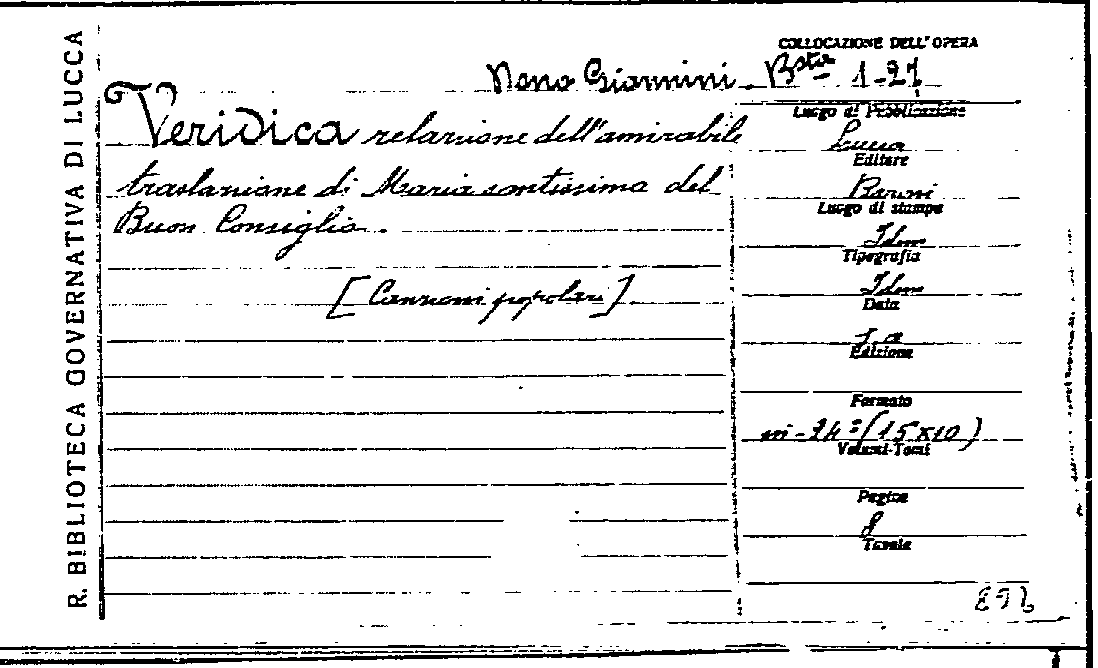 R. BIBLIOTECA GOVERNATIVA DI LUCCA
COLLOCAZIONE DELL' OPERA
Nono Giannini. Bsta 1-27
Veridica relazione dell'amirabile
traslazione di Maria santissima del
Buon Consiglio.
[Canzoni popolari].
Luogo di Pubblicazione
Lucca
Editore
Baroni
Luogo di stampa
Idem
Tipografia
Idem
Data
s. a.
Edizione
Formato
in-24º (15x10)
Volumi-Tomi
Pagine
8
Tavole